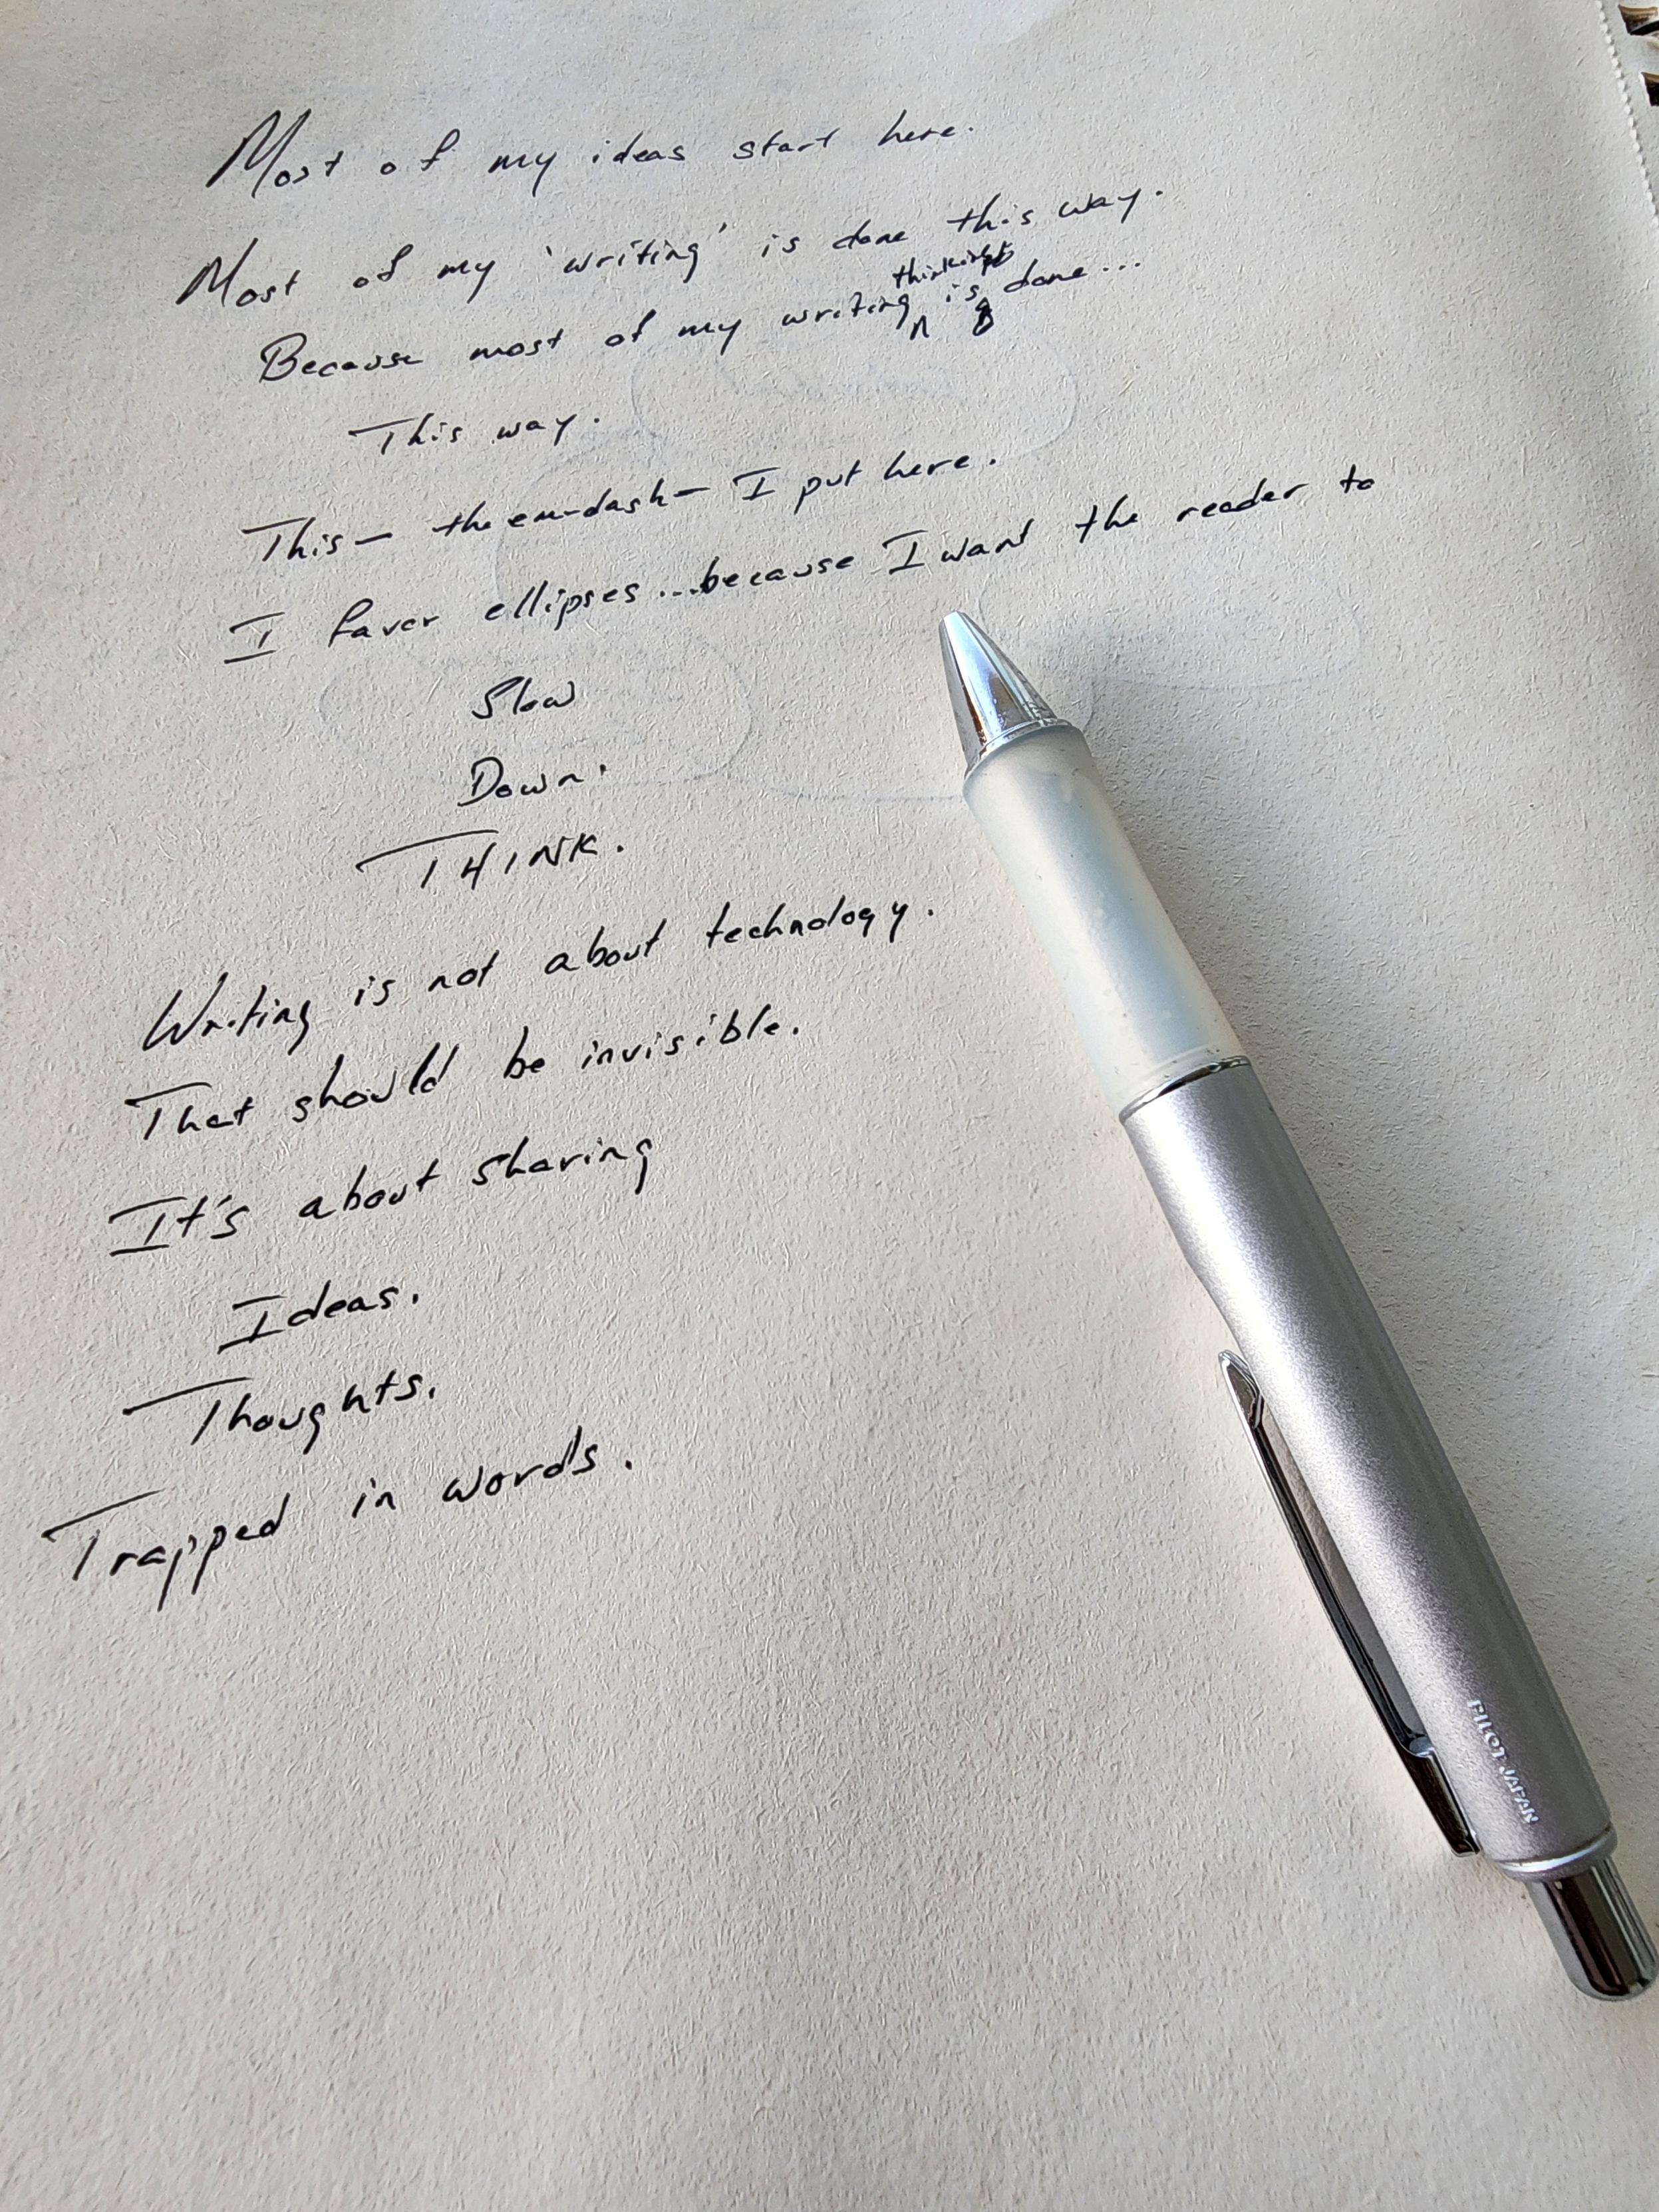 Most of my ideas start here.
Most of my 'writing' is done this way.
thinking
Because most of my writing is done...
This way.
This — the em-dash — I put here.
I favor ellipses...because I want the reader to
Slow
Down.
THINK.
Writing is not about technology.
That should be invisible.
It's about sharing
Ideas.
Thoughts.
Trapped in words.
PILOT JAPAN